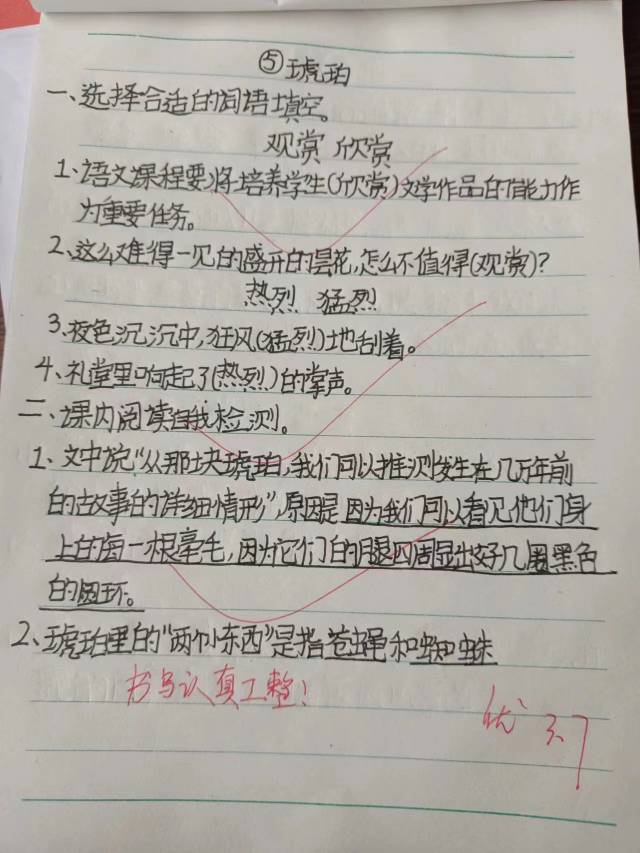 ⑤琥珀
一、选择合适的词语填空。
观赏 欣赏
1、语文课程要将培养学生(欣赏)文学作品的能力作
为重要任务。
2、这么难得一见的盛开的昙花,怎么不值得(观赏)?
热烈 猛烈
3、夜色沉沉中,狂风(猛烈)地刮着。
4、礼堂里响起了(热烈)的掌声。
二、课内阅读自我检测。
1、文中说“从那块琥珀,我们可以推测发生在几万年前
的故事的详细情形”,原因是因为我们可以看见他们身
上的每一根毫毛,因为它们的腿四周显出好几圈黑色
的圆环。
2、琥珀里的“两个小东西”是指苍蝇和蜘蛛
书写认真工整!
优 3.7